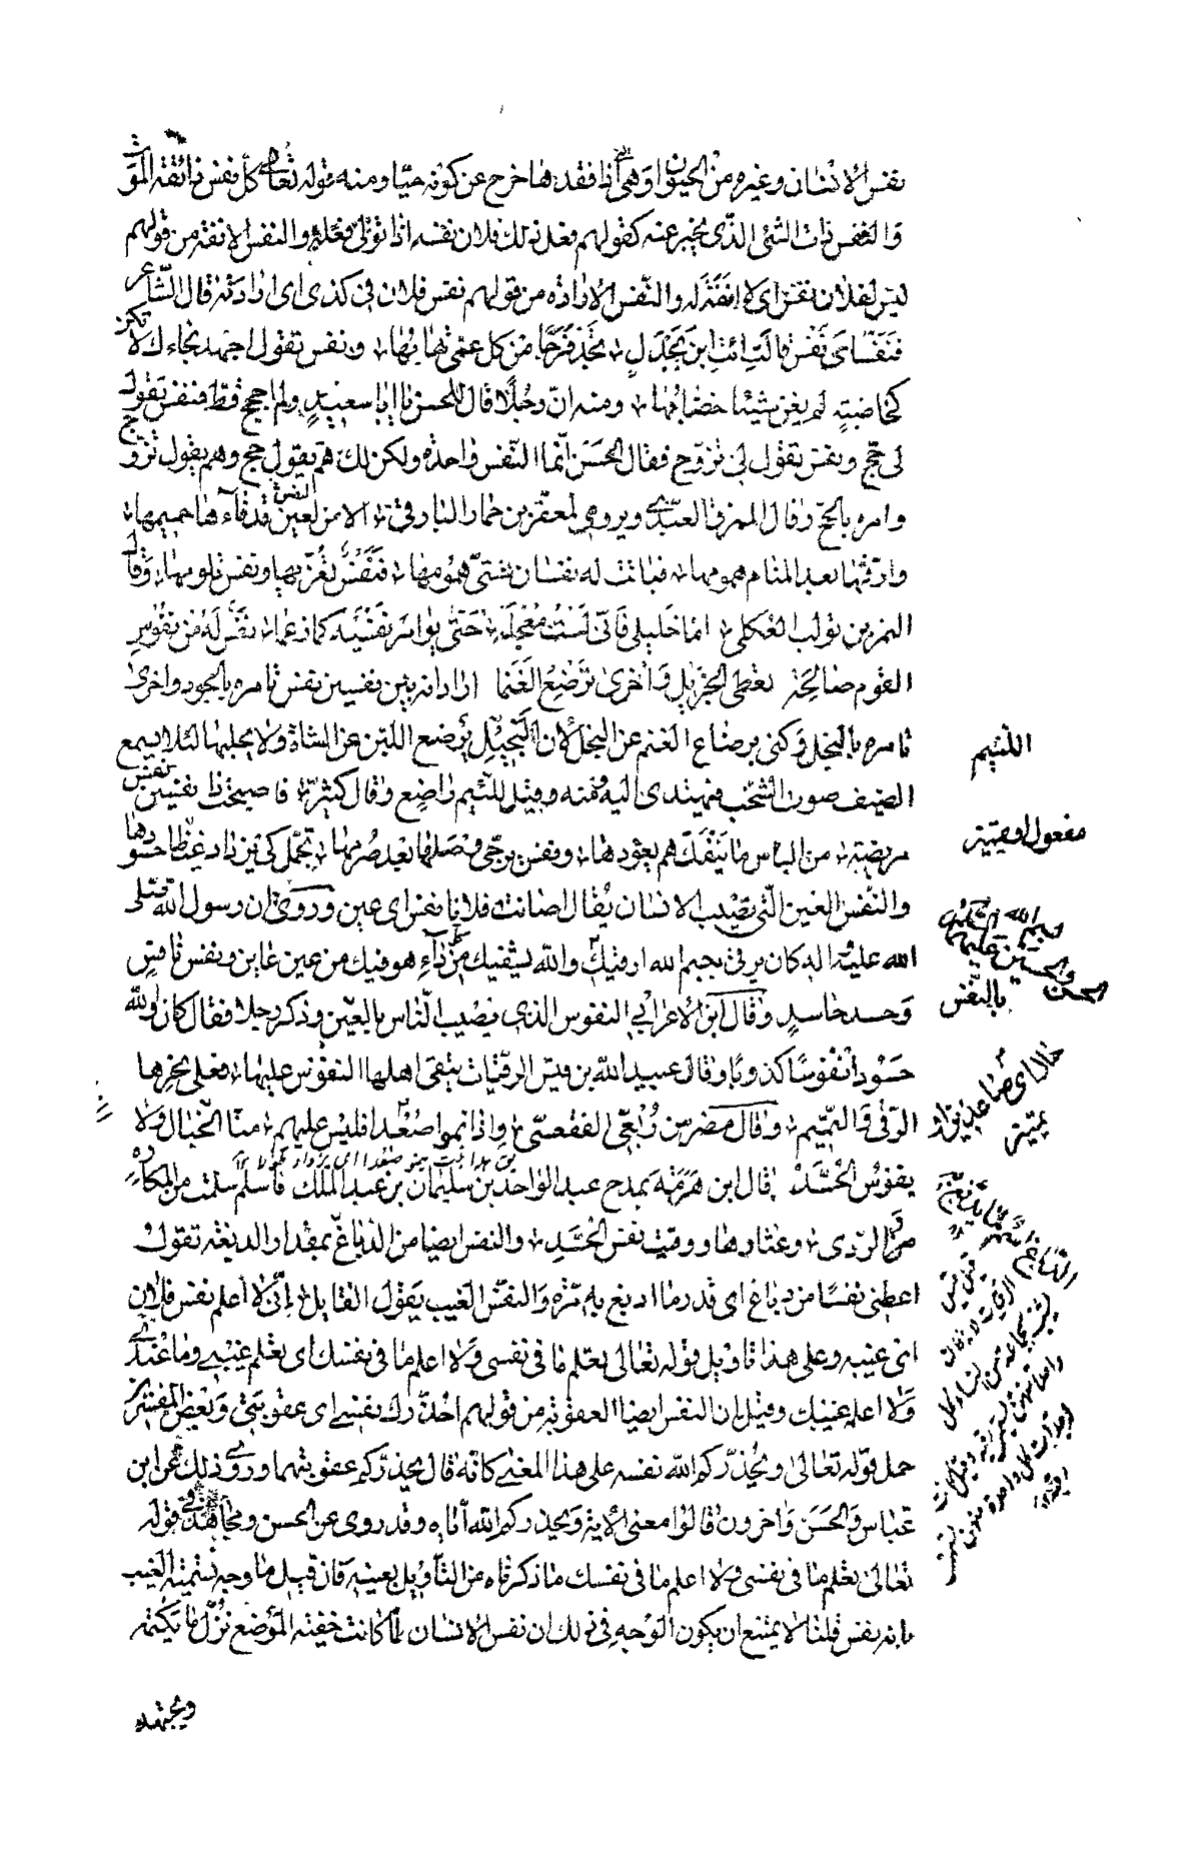 نفس الانسان وغيره من الحيوان وهي التي اذا فقدها خرج عن كونه حيّا ومنه قوله تعالى كل نفس ذائقة الموت
والنفس ذات الشئ الذى يخبر عنه كقولهم فعل ذلك فلان نفسه اذا تولى فعله والنفس الانفة من قولهم
ليس لفلان نفس اى لا انفة له والنفس الارادة من قولهم نفس فلان فى كذى اى ارادته قال الشاعر
فنفساى نفس قالت ائت ابن بجدل تجد فرجا من كل غمى تهابها ونفس تقول اجهد نجاءك لا تكن
كخاضبة لم يغن شيئا خضابها ومنه ان رجلا قال للحسن يا ابا سعيد لم احجج قط فنفس تقول
لى حج ونفس تقول لى تزوج فقال الحسن انما النفس واحدة ولكن لك هم يقول حج وهم يقول تزوج
وامره بالحج وقال الممزق العبدى ويروى لمعقر بن حمار البارقى الا من لعين قدناءها حميمها
وارقنى بعد المنام همومها فباتت له نفسان شتى همومها فنفس تعزيها ونفس تلومها وقال
النمر بن تولب العكلى اما خليلى فانى لست معجله حتى يؤامر نفسيه كما زعما نفس له من نفوس
القوم صالحة تعطى الجزيل واخرى ترضع الغنما اراد انه بين نفسين نفس تامره بالجود واخرى
تامره بالبخل وكنى برضاع الغنم عن البخل لان البخيل يرضع اللبن عن الشاة ولا يحلبها لئلا يسمع
الضيف صوت الشخب فيهتدى اليه فمنه وقيل للئيم راضع وقال كثير فاصبحت ذا نفسين نفس
مريضة من الياس ما ينفك هم يعودها ونفس ترجى وصلها بعد صرمها تجمل كى يزداد غيظا حسودها
والنفس العين التى تصيب الانسان يقال اصابت فلانا نفس اى عين وروى ان رسول الله صلى
الله عليه واله كان يرقى بسم الله ارقيك والله يشفيك من كل داء هو فيك من عين عاين ونفس نافس
وحسد حاسد وقال ابن الاعرابى النفوس الذى يصيب الناس بالعين وذكر رجلا فقال كان والله
حسودا نفوسا كذوبا وقال عبيد الله بن قيس الرقيات يتقى اهلها النفوس عليها فعلى نحرها
الرقى والتميم وقال مضرس بن ربعى الفقعسى واذا نموا صعدا فليس عليهم منا الخبال ولا
نفوس الحسد قال ابن هرمة يمدح عبد الواحد بن سليمان بن عبد الملك فاسلم سلمت من المكاره
والردى وعثارها ووقيت نفس الحسد والنفس ايضا من الدباغ بمقدار الدبغة تقول
اعطنى نفسا من دباغ اى قدر ما ادبغ به مرة والنفس الغيب يقول القايل انى لا اعلم نفس فلان
اى غيبه وعلى هذا تاويل قوله تعالى تعلم ما فى نفسى ولا اعلم ما فى نفسك اى تعلم غيبى وما عندى
ولا اعلم غيبك وقيل ان النفس ايضا العقوبة من قولهم احذرك نفسى اى عقوبتى وبعض المفسرين
حمل قوله تعالى ويحذركم الله نفسه على هذا المعنى كانه قال يحذركم عقوبته وروى ذلك عن ابن
عباس والحسن واخرون قالوا معنى الاية ويحذركم الله اياه وقد روى عن الحسن ومجاهد فى قوله
تعالى تعلم ما فى نفسى ولا اعلم ما فى نفسك ما ذكرناه من التأويل بعينه فان قيل ما وجه تسمية الغيب
بانه نفس قلنا لا يمتنع ان يكون الوجه فى ذلك ان نفس الانسان لما كانت خفية الموضع نزل ما يكتمه
ويجتهد
اللئيم
مفعول
بالنفس